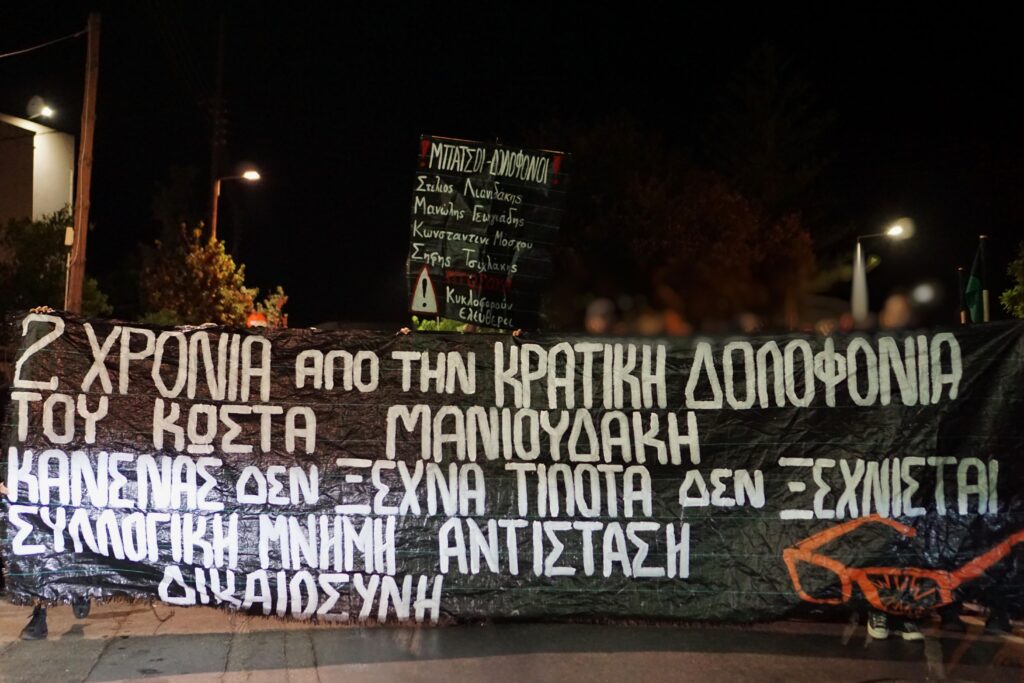 ! ΜΠΑΤΣΟΙ-ΔΟΛΟΦΟΝΟΙ !
Στέλιος Λιανιδάκης
Μανώλης Γεωργιάδης
Κωνσταντίνα Μόσχου
Σήφης Τσιχλάκης
! Κυκλοφορούν
ελεύθεροι
2 ΧΡΟΝΙΑ ΑΠΟ ΤΗΝ ΚΡΑΤΙΚΗ ΔΟΛΟΦΟΝΙΑ
ΤΟΥ ΚΩΣΤΑ ΜΑΝΙΟΥΔΑΚΗ
ΚΑΝΕΝΑΣ ΔΕΝ ΞΕΧΝΑ ΤΙΠΟΤΑ ΔΕΝ ΞΕΧΝΙΕΤΑΙ
ΣΥΛΛΟΓΙΚΗ ΜΝΗΜΗ ΑΝΤΙΣΤΑΣΗ
ΔΙΚΑΙΟΣΥΝΗ